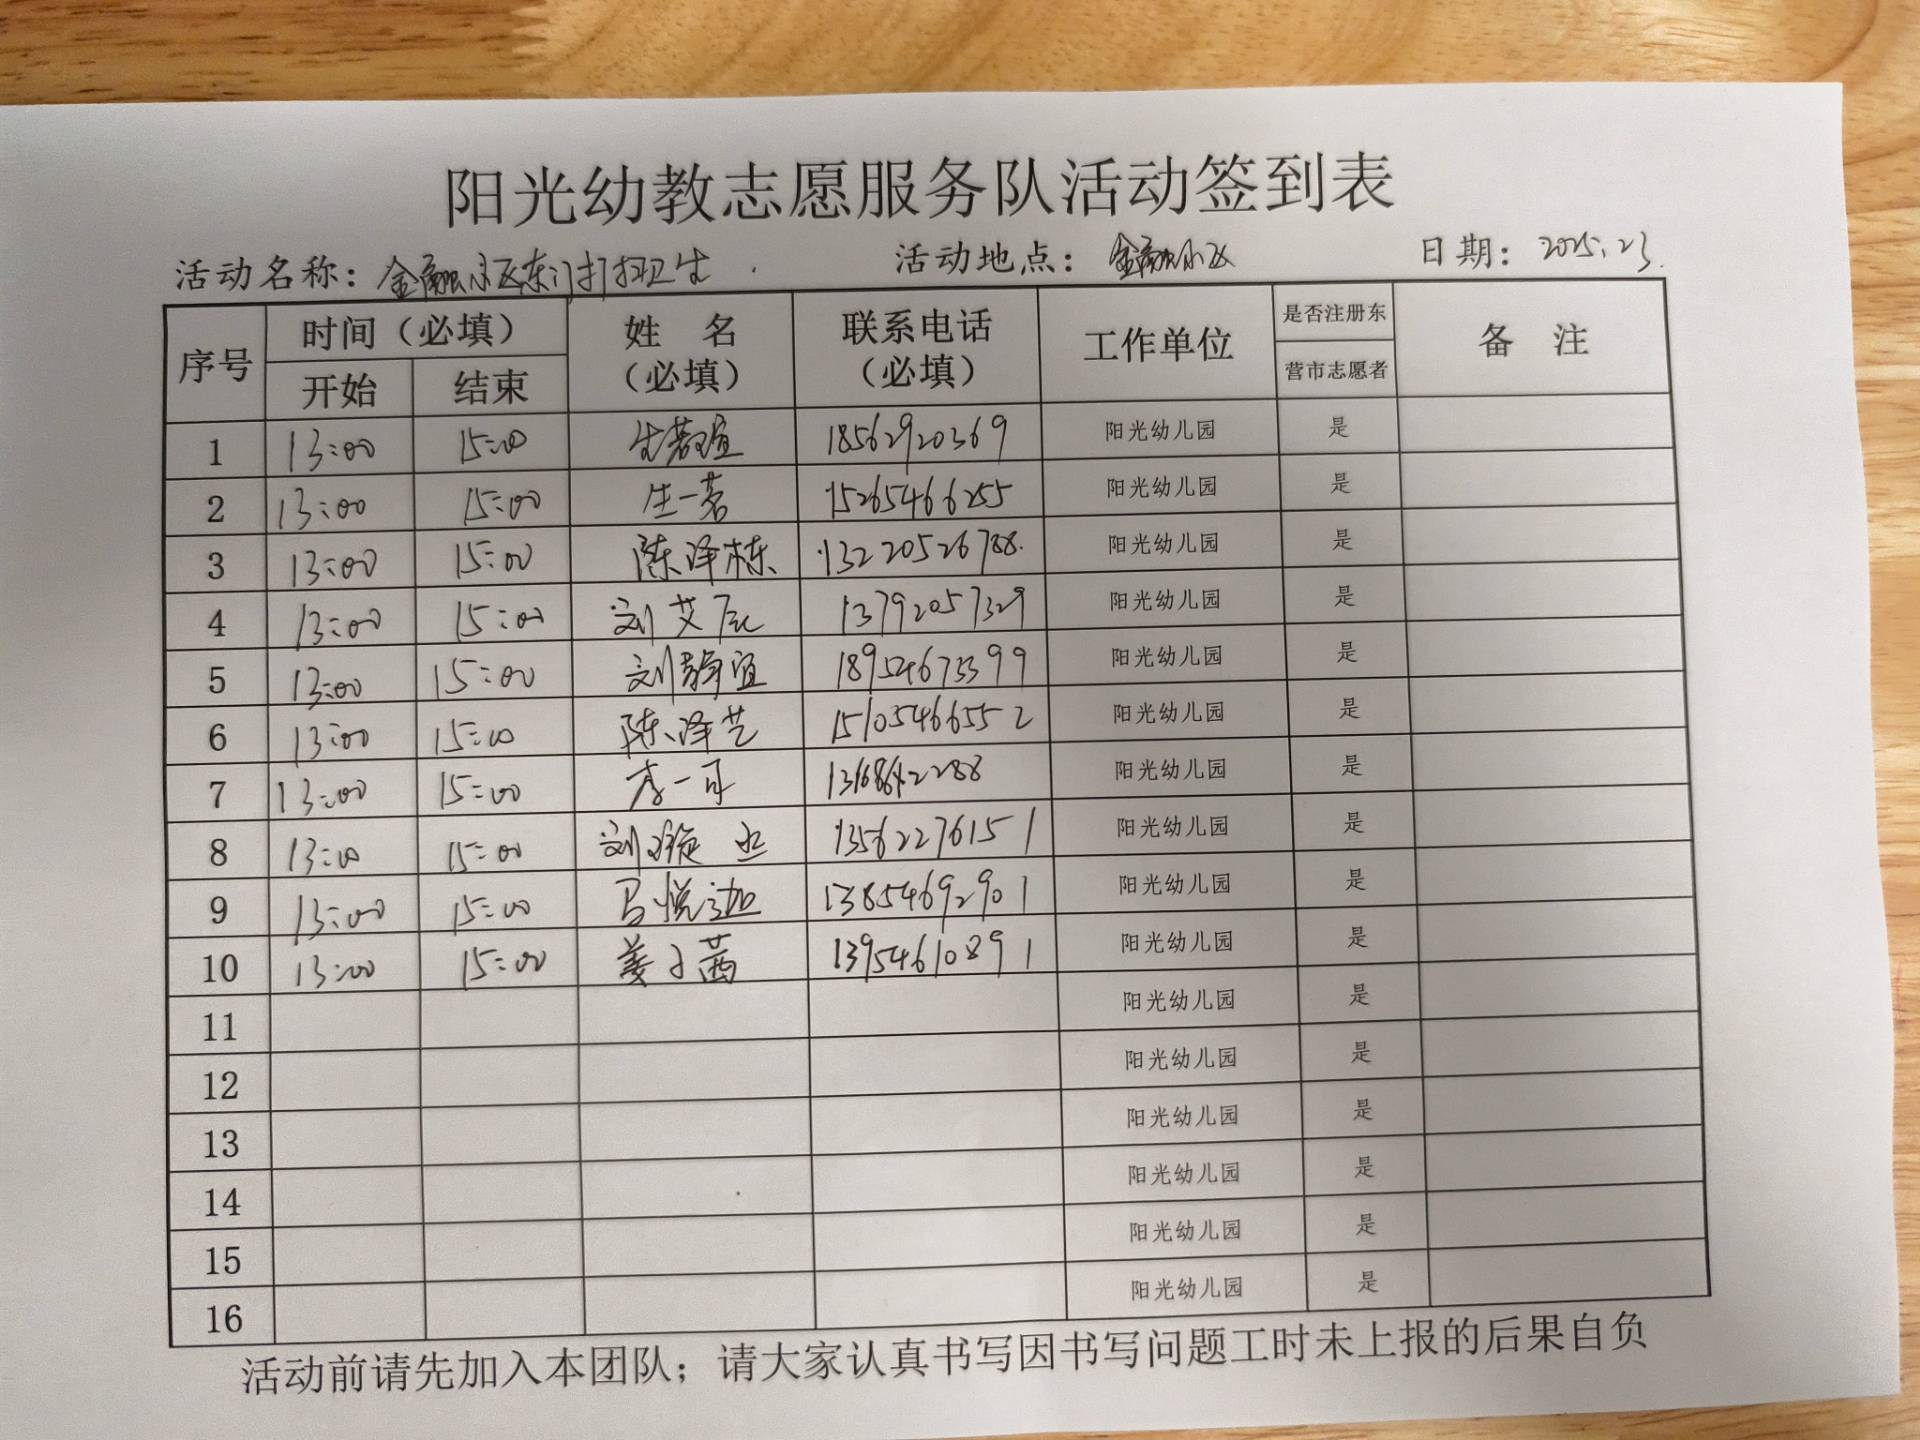 阳光幼教志愿服务队活动签到表
活动名称：金融小区东门打扫卫生 活动地点：金融小区 日期：2025.23.
序号 时间（必填） 姓 名（必填） 联系电话（必填） 工作单位 是否注册东营市志愿者 备 注
开始 结束
1 13:00 15:00 生若瑄 18562920369 阳光幼儿园 是
2 13:00 15:00 生一茗 15265466255 阳光幼儿园 是
3 13:00 15:00 陈泽栋 13220526788 阳光幼儿园 是
4 13:00 15:00 刘艾辰 13792057329 阳光幼儿园 是
5 13:00 15:00 刘静宜 18954673399 阳光幼儿园 是
6 13:00 15:00 陈泽艺 15105466552 阳光幼儿园 是
7 13:00 15:00 李一 阳光幼儿园 是
8 13:00 15:00 刘璇 13562276151 阳光幼儿园 是
9 13:00 15:00 马悦迦 13854692901 阳光幼儿园 是
10 13:00 15:00 姜子茜 13954610891 阳光幼儿园 是
11 阳光幼儿园 是
12 阳光幼儿园 是
13 阳光幼儿园 是
14 阳光幼儿园 是
15 阳光幼儿园 是
16 阳光幼儿园 是
活动前请先加入本团队；请大家认真书写因书写问题工时未上报的后果自负